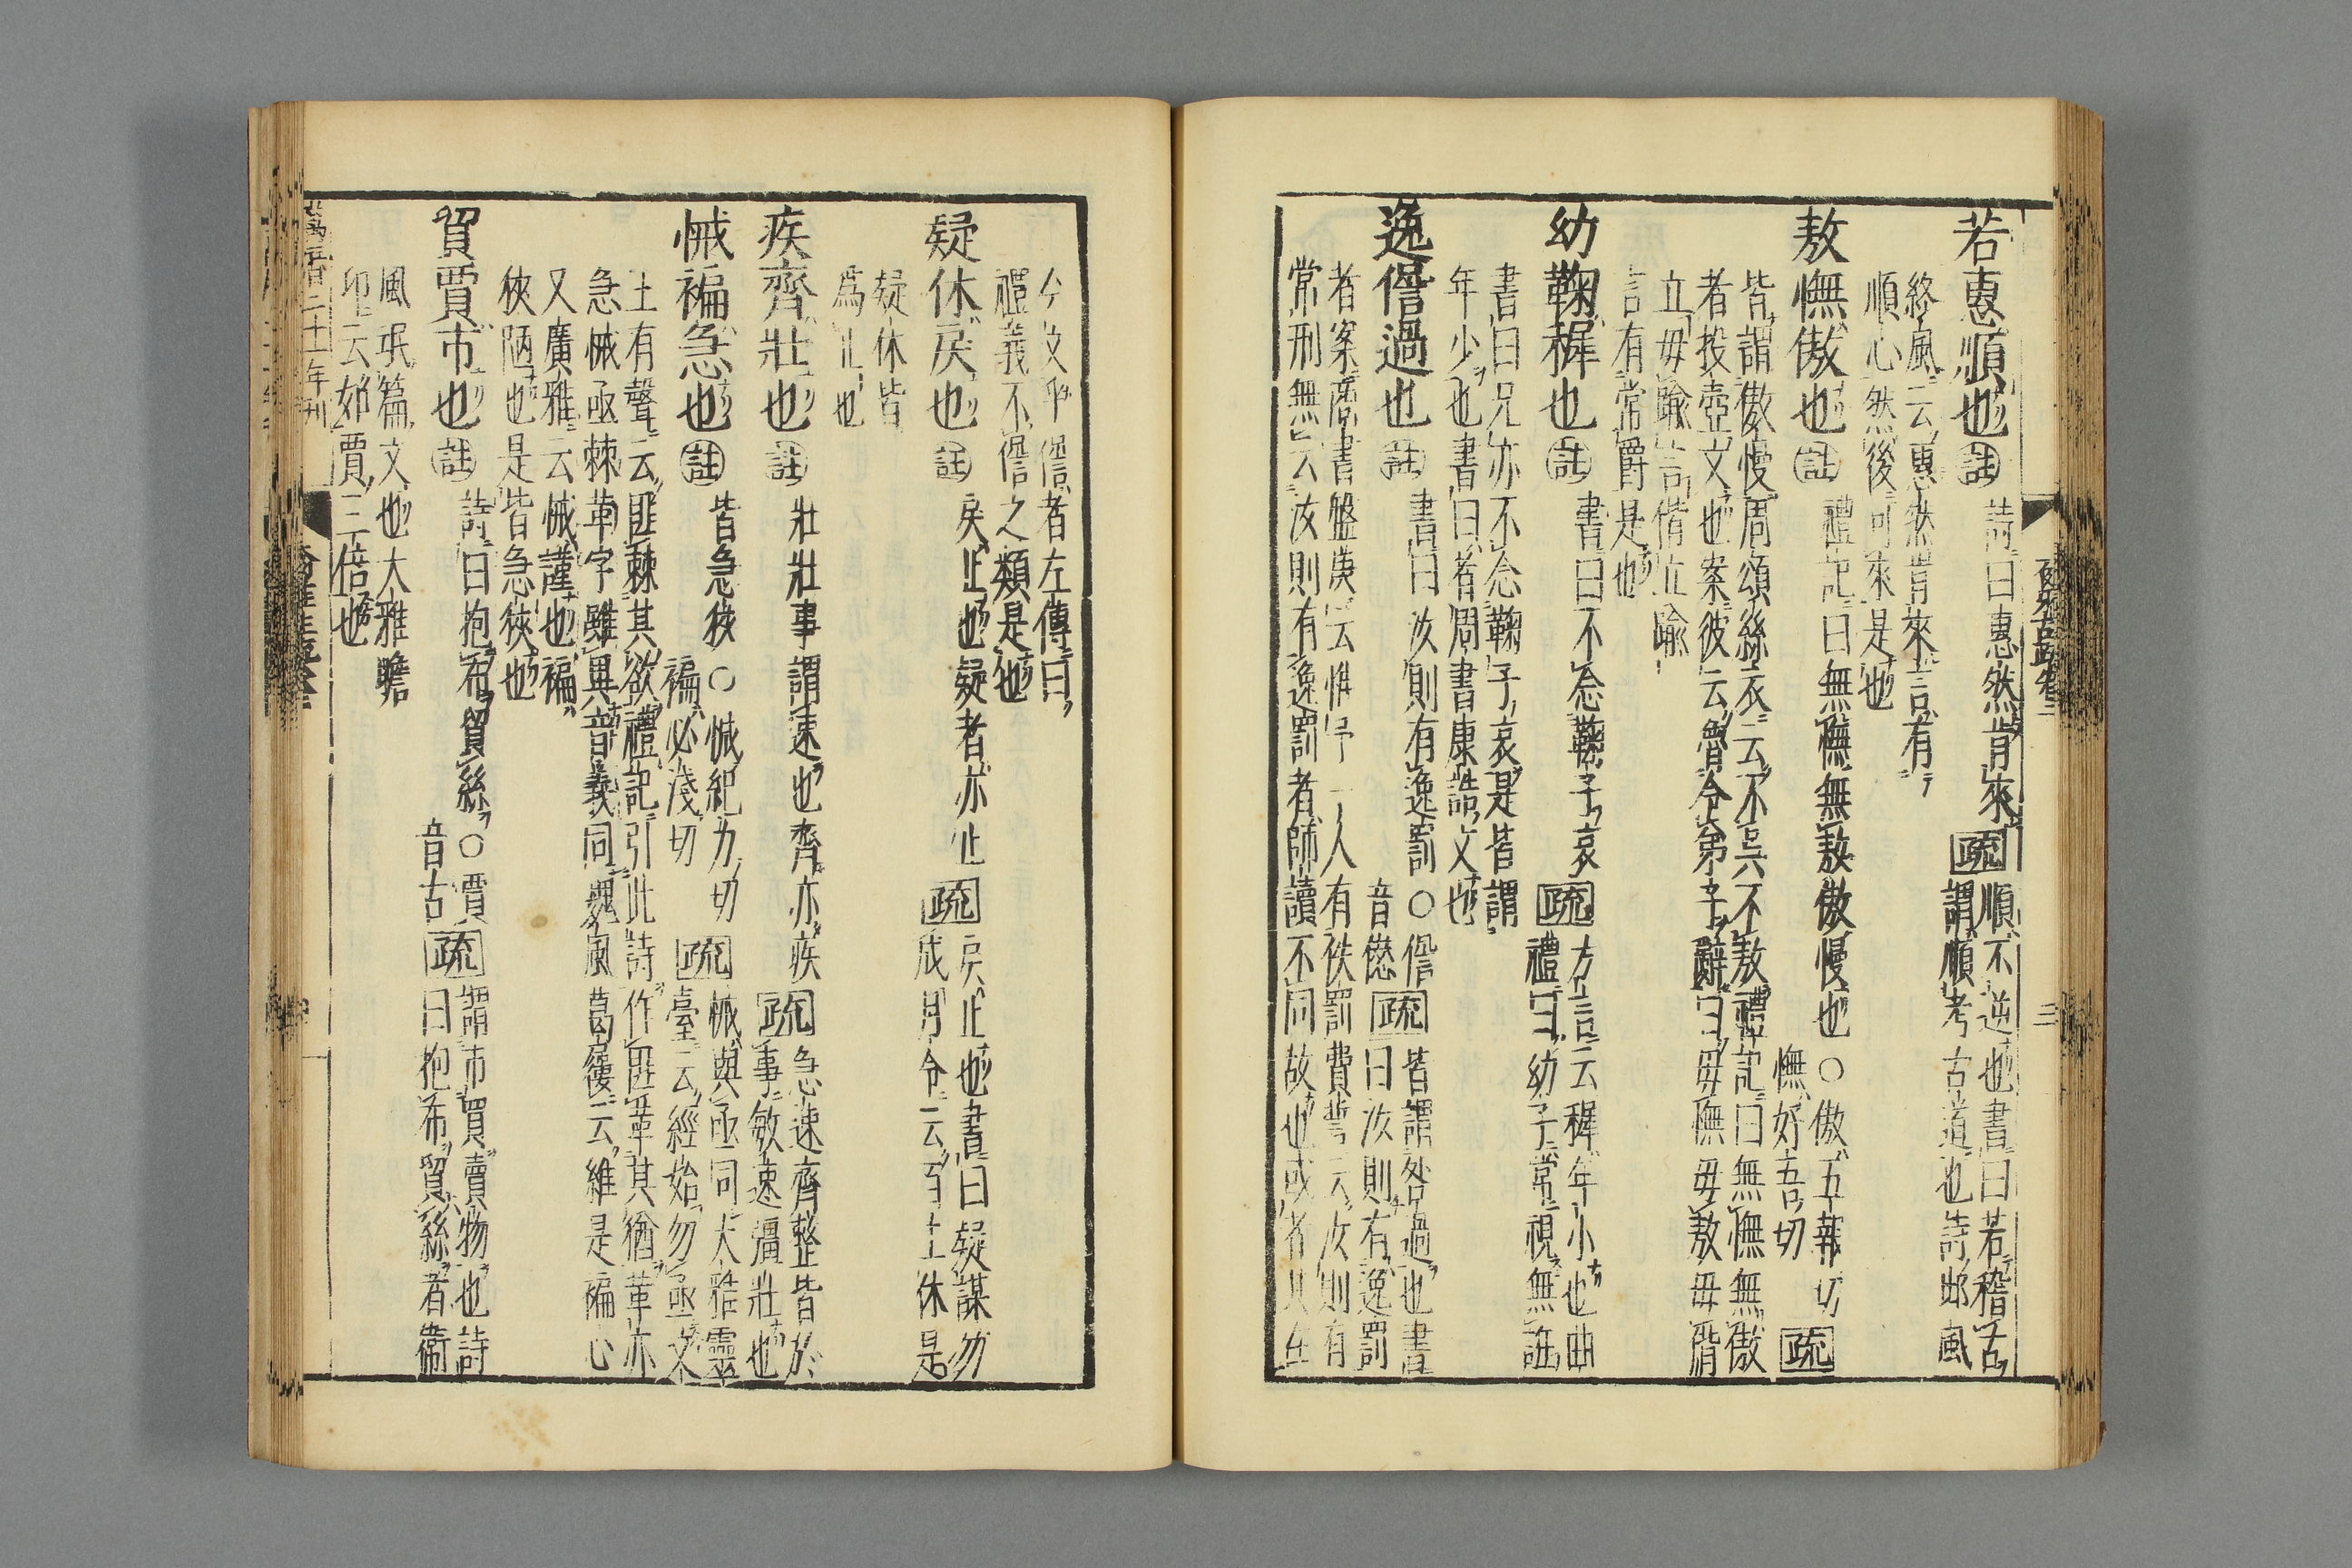 若惠順也註詩曰惠然肯來疏順不逆也書曰若稽古
謂順考古道也詩邶風
終風云惠然肯來言有
順心然後可來是也
敖憮傲也註禮記曰無憮無敖傲慢也○傲五報切
憮好吾切疏
皆謂傲慢周頌絲衣云不吳不敖禮記曰無憮無傲
者投壺文也案彼云魯令弟子辭曰毋憮毋敖毋偝
立毋踰言偝立踰
言有常爵是也
幼鞠稺也註書曰不念鞠子哀疏方言云稺年小也曲
禮曰幼子常視無誑
書曰兄亦不念鞠子哀是皆謂
年少也書曰者周書康誥文也
逸諐過也註書曰汝則有逸罰○諐
音愆疏皆謂咎過也書
曰汝則有逸罰
者案商書盤庚云惟予一人有佚罰費誓云汝則有
常刑無云汝則有逸罰者師讀不同故也或者
今文乎諐者左傳曰
禮義不諐之類是也
疑休戾也註戾止也疑者亦止疏戾止也書曰疑謀勿
成月令云百工休是
疑休皆
爲止也
疾齊壯也註壯壯事謂速也齊亦疾疏急速齊整皆於
事敏速彊壯也
悈褊急也註皆急狹○悈紀力切
褊必淺切疏悈與亟同大雅靈
臺云經始勿亟文
王有聲云匪棘其欲禮記引此詩作匪革其猶革亦
急悈亟棘革字雖異音義同魏風葛屨云維是褊心
又廣雅云悈謹也褊
狹陋也是皆急狹也
貿賈市也註詩曰抱布貿絲○賈
音古疏謂市買賣物也詩
曰抱布貿絲者衛
風氓篇文也大雅瞻
卬云如賈三倍也
萬曆二十一年刊